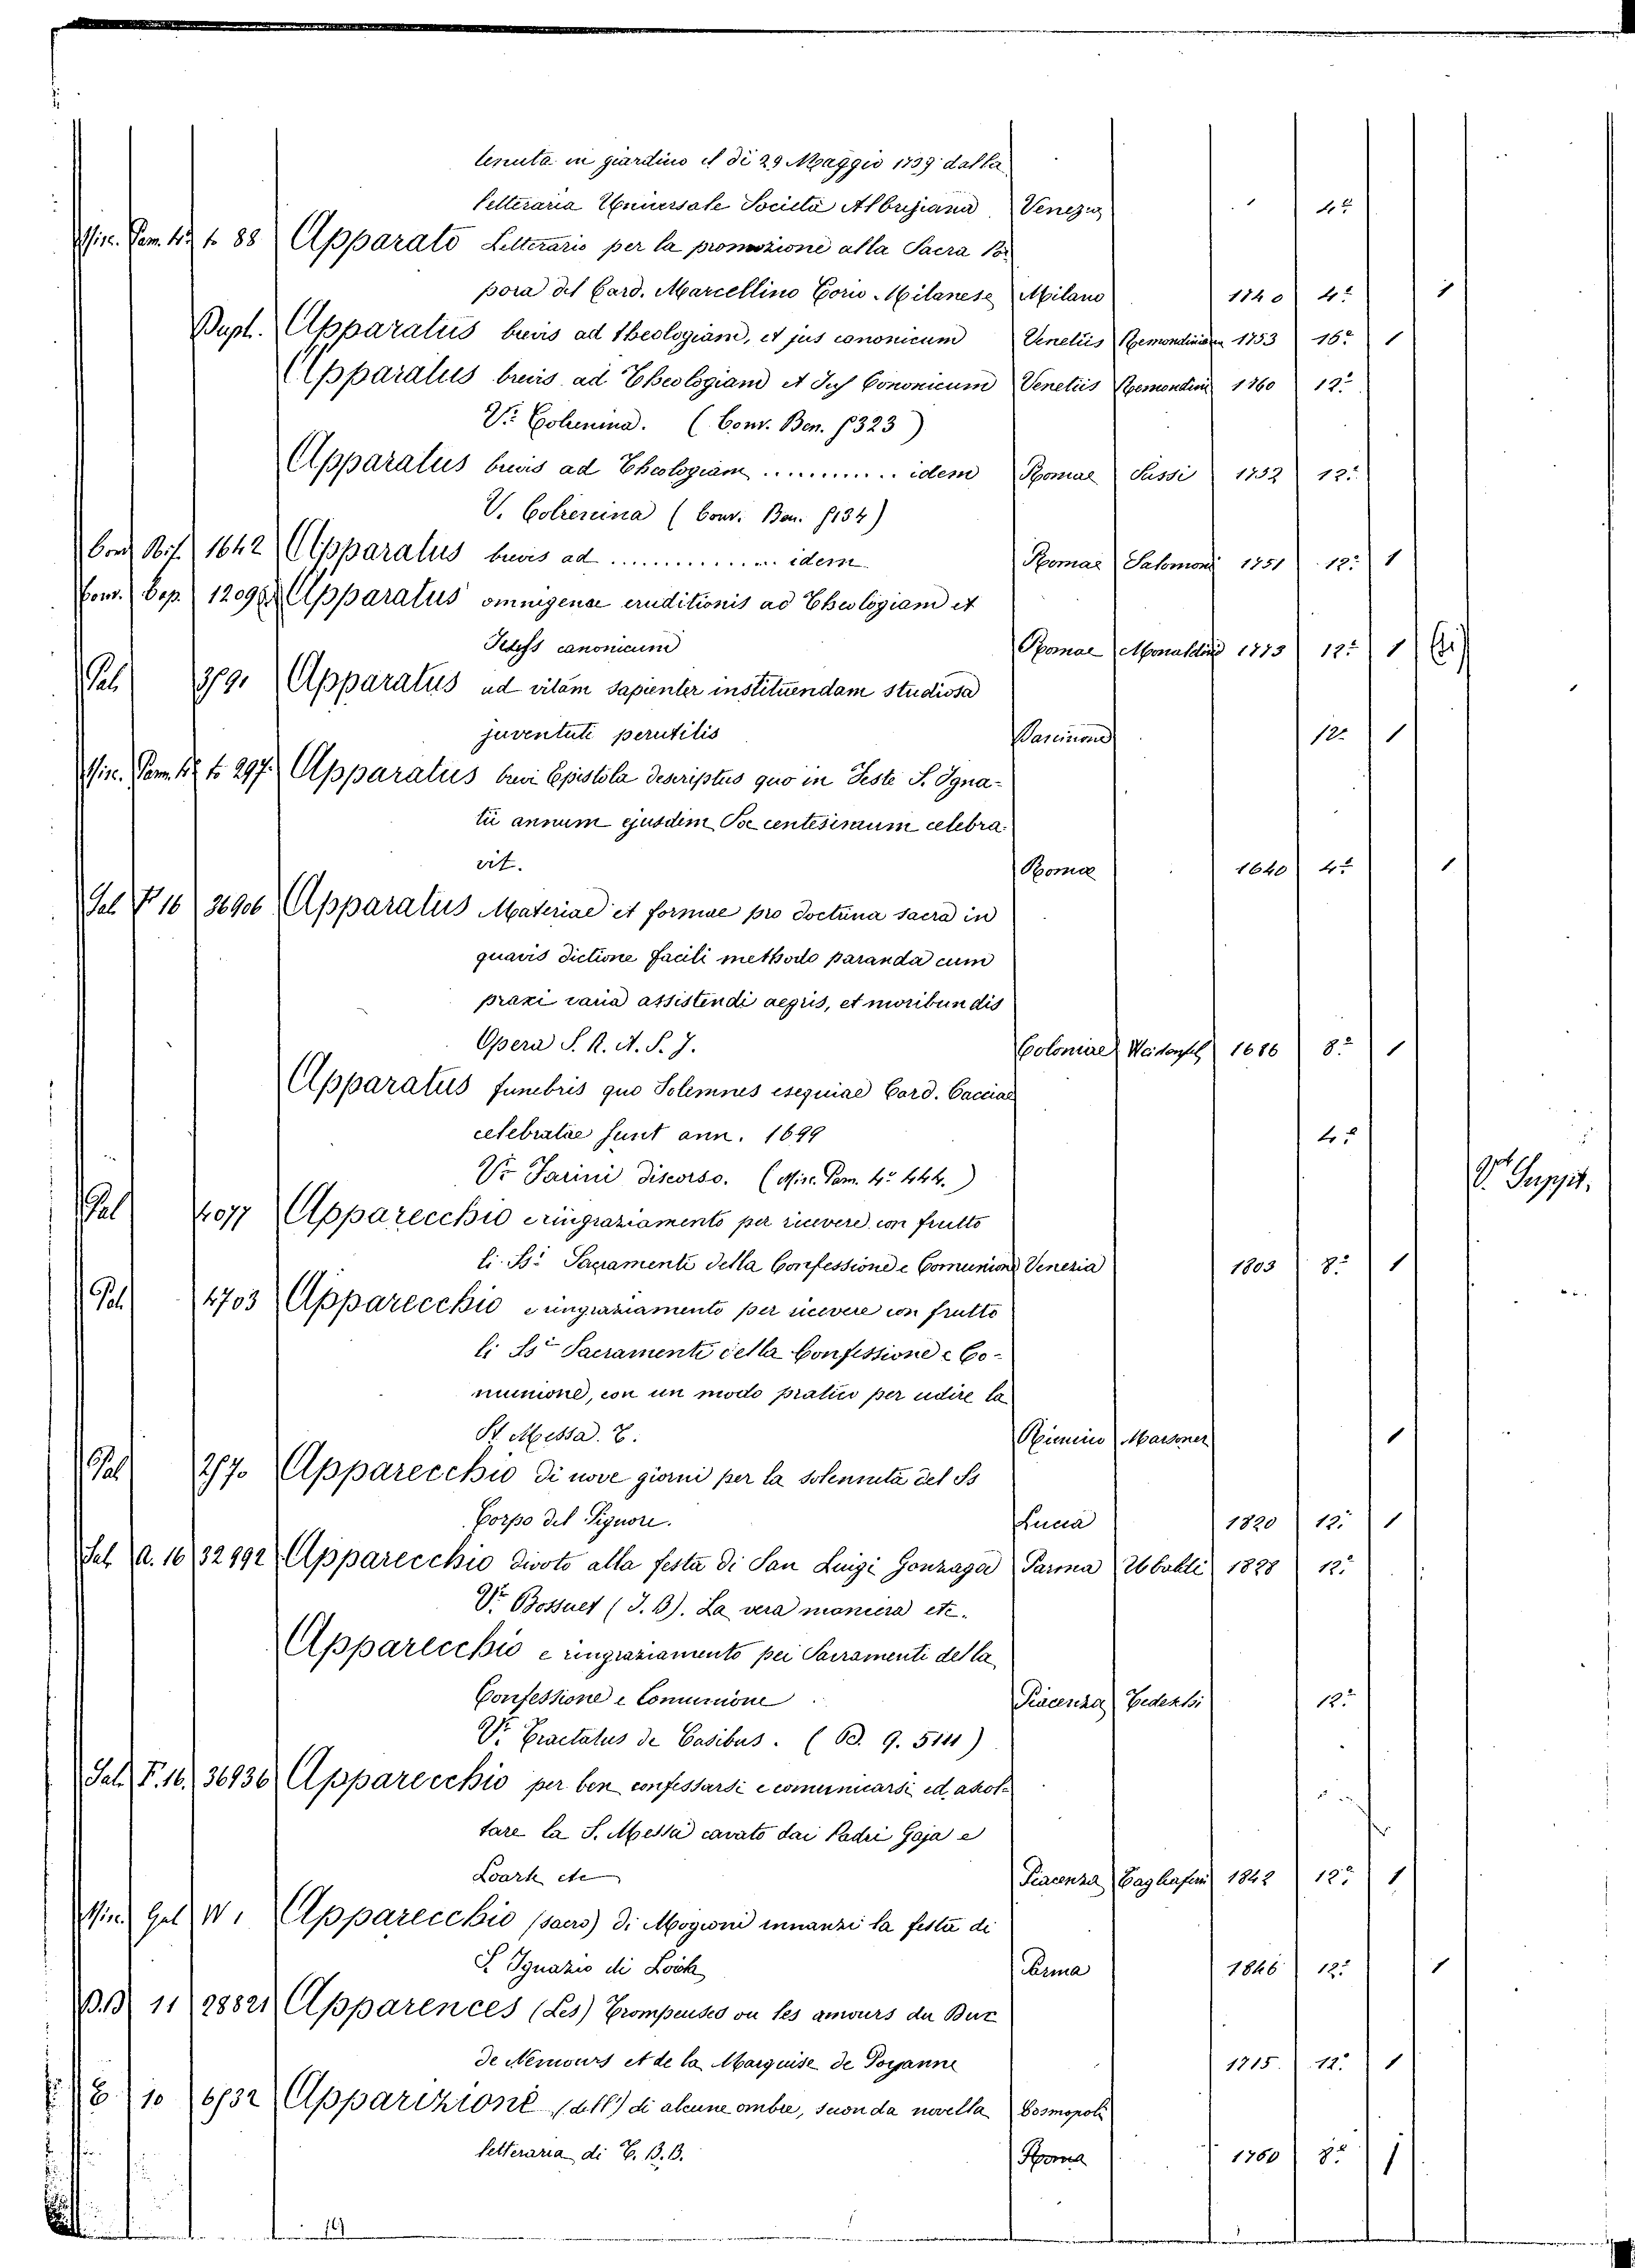 tenuta in giardino il di 29 Maggio 1739 dalla
letteraria Universale Società Albrijiana Venezia 4.º
Misc. Parm. 4.º t. 88 Apparato Letterario per la promozione alla Sacra Por
pora del Card. Marcellino Corio Milanese Milano 1740 4.º 1
Dupl. Apparatus brevis ad theologiam, et jus canonicum Venetiis Remondiniana 1753 16.º 1
Apparatus brevis ad Theologiam et Jus Cononicum Venetiis Remondini 1760 12.º
V. Coherina. (Conv. Ben. 1323)
Apparatus brevis ad Theologiam ............ idem Romae Sassi 1752 12.º
V. (Conv. Ben. 1134)
1642 Apparatus brevis ad ............... idem Romae Salomoni 1751 12.º 1
Conv. Cap. Apparatus omnigenae eruditionis ad Theologiam et
canonicum Romae Monaldini 1773 12.º 1
Pal. Apparatus ad vitam sapienter instituendam studiosa
juventuti perutilis 12.º 1
Misc. Parm. 4.º t. 297. Apparatus brevi Epistola descriptus quo in Feste S. Igna-
tii annum ejusdem Soc centesimum celebra-
vit. Romae 1640 4.º 1
Sal. F 16 36906 Apparatus Materiae et formae pro doctrina sacra in
quavis dictione facili methodo paranda cum
praxi varia assistendi aegris, et moribundis
Opera S. R. A. S. J. Coloniae 1686 8.º 1
Apparatus funebris quo Solemnes esequiae Card. Cacciae
celebratae sunt ann. 1699 4.º
V. Farini Discorso. (Misc. Parm. 4.º 444.) V. Suppit.
Pal 4077 Apparecchio e ringraziamento per ricevere con frutto
li SS.i Sacramenti della Confessione e Comunione Venezia 1803 8.º 1
Pal. 4703 Apparecchio e ringraziamento per ricevere con frutto
li SS.i Sacramenti della Confessione e Co-
munione, con un modo pratico per udire la
S. Messa. Rimini Marsoner 1
Pal Apparecchio di nove giorni per la solennità del SS
Corpo del Signore. Lucca 1820 12.º 1
Sal. A. 16 32992 Apparecchio divoto alla festa di San Luigi Gonzaga Parma Ubaldi 1828 12.º
V. Bossuet (J. B). La vera maniera etc.
Apparecchio e ringraziamento pei Sacramenti della
Confessione e Comunione Piacenza Tedeschi 12.º
V. Tractatus de Casibus.
Sal. F. 16. 36936 Apparecchio per ben confessarsi e comunicarsi ed ascol-
tare la S. Messa cavato dai Padri Gaja e
Loark etc Piacenza Tagliaferri 1842 12.º 1
Misc. Apparecchio (sacro) di innanzi la festa di
S. Ignazio di Parma 1846 12.º 1
B.B 11 28821 Apparences (Les) Trompeuses ou les amours du Duc
de Nemours et de la Marquise de Poyanne 1715. 12.º 1
10 Apparizione (dell') di alcune ombre, seconda novella Cosmopoli
letteraria di T. B. B. Roma 1760 8.º 1